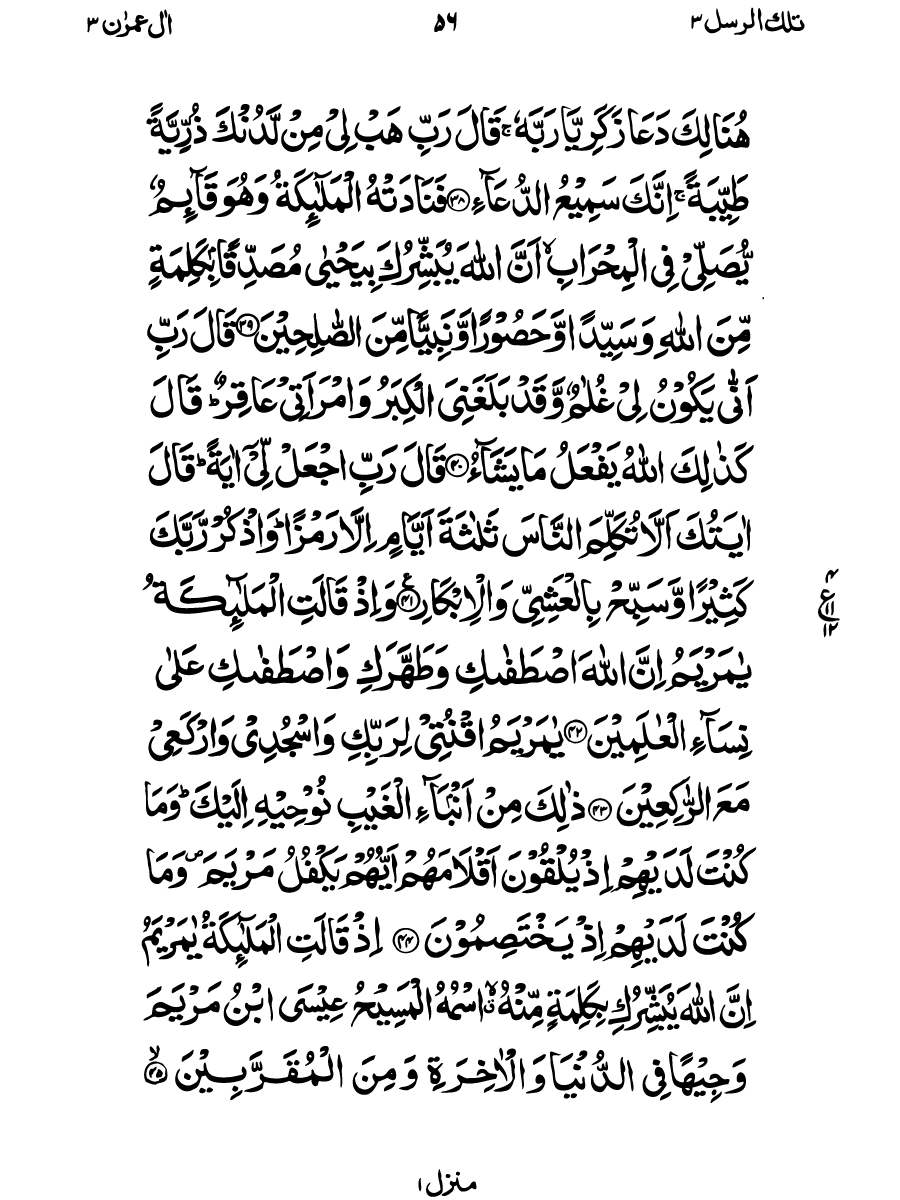 تلك الرسل ٣
۵۶
اٰل عمرٰن ٣
هُنَالِكَ دَعَا زَكَرِيَّا رَبَّهٗ ۚ قَالَ رَبِّ هَبْ لِيْ مِنْ لَّدُنْكَ ذُرِّيَّةً
طَيِّبَةً ۚ اِنَّكَ سَمِيْعُ الدُّعَآءِ ﴿۳۸﴾ فَنَادَتْهُ الْمَلٰٓئِكَةُ وَهُوَ قَآئِمٌ
يُّصَلِّيْ فِي الْمِحْرَابِ ۙ اَنَّ اللّٰهَ يُبَشِّرُكَ بِيَحْيٰى مُصَدِّقًۢا بِكَلِمَةٍ
مِّنَ اللّٰهِ وَسَيِّدًا وَّحَصُوْرًا وَّنَبِيًّا مِّنَ الصّٰلِحِيْنَ ﴿۳۹﴾ قَالَ رَبِّ
اَنّٰى يَكُوْنُ لِيْ غُلٰمٌ وَّقَدْ بَلَغَنِيَ الْكِبَرُ وَامْرَاَتِيْ عَاقِرٌ ؕ قَالَ
كَذٰلِكَ اللّٰهُ يَفْعَلُ مَا يَشَآءُ ﴿۴۰﴾ قَالَ رَبِّ اجْعَلْ لِّيْٓ اٰيَةً ؕ قَالَ
اٰيَتُكَ اَلَّا تُكَلِّمَ النَّاسَ ثَلٰثَةَ اَيَّامٍ اِلَّا رَمْزًا ؕ وَاذْكُرْ رَّبَّكَ
كَثِيْرًا وَّسَبِّحْ بِالْعَشِيِّ وَالْاِبْكَارِ ﴿۴۱﴾ وَاِذْ قَالَتِ الْمَلٰٓئِكَةُ
۴
ع
۱۱
۱۲
يٰمَرْيَمُ اِنَّ اللّٰهَ اصْطَفٰىكِ وَطَهَّرَكِ وَاصْطَفٰىكِ عَلٰى
نِسَآءِ الْعٰلَمِيْنَ ﴿۴۲﴾ يٰمَرْيَمُ اقْنُتِيْ لِرَبِّكِ وَاسْجُدِيْ وَارْكَعِيْ
مَعَ الرّٰكِعِيْنَ ﴿۴۳﴾ ذٰلِكَ مِنْ اَنْۢبَآءِ الْغَيْبِ نُوْحِيْهِ اِلَيْكَ ؕ وَمَا
كُنْتَ لَدَيْهِمْ اِذْ يُلْقُوْنَ اَقْلَامَهُمْ اَيُّهُمْ يَكْفُلُ مَرْيَمَ ۪ وَمَا
كُنْتَ لَدَيْهِمْ اِذْ يَخْتَصِمُوْنَ ﴿۴۴﴾ اِذْ قَالَتِ الْمَلٰٓئِكَةُ يٰمَرْيَمُ
اِنَّ اللّٰهَ يُبَشِّرُكِ بِكَلِمَةٍ مِّنْهُ ۖۙ اسْمُهُ الْمَسِيْحُ عِيْسَى ابْنُ مَرْيَمَ
وَجِيْهًا فِي الدُّنْيَا وَالْاٰخِرَةِ وَمِنَ الْمُقَرَّبِيْنَ ۙ﴿۴۵﴾
منزل ۱